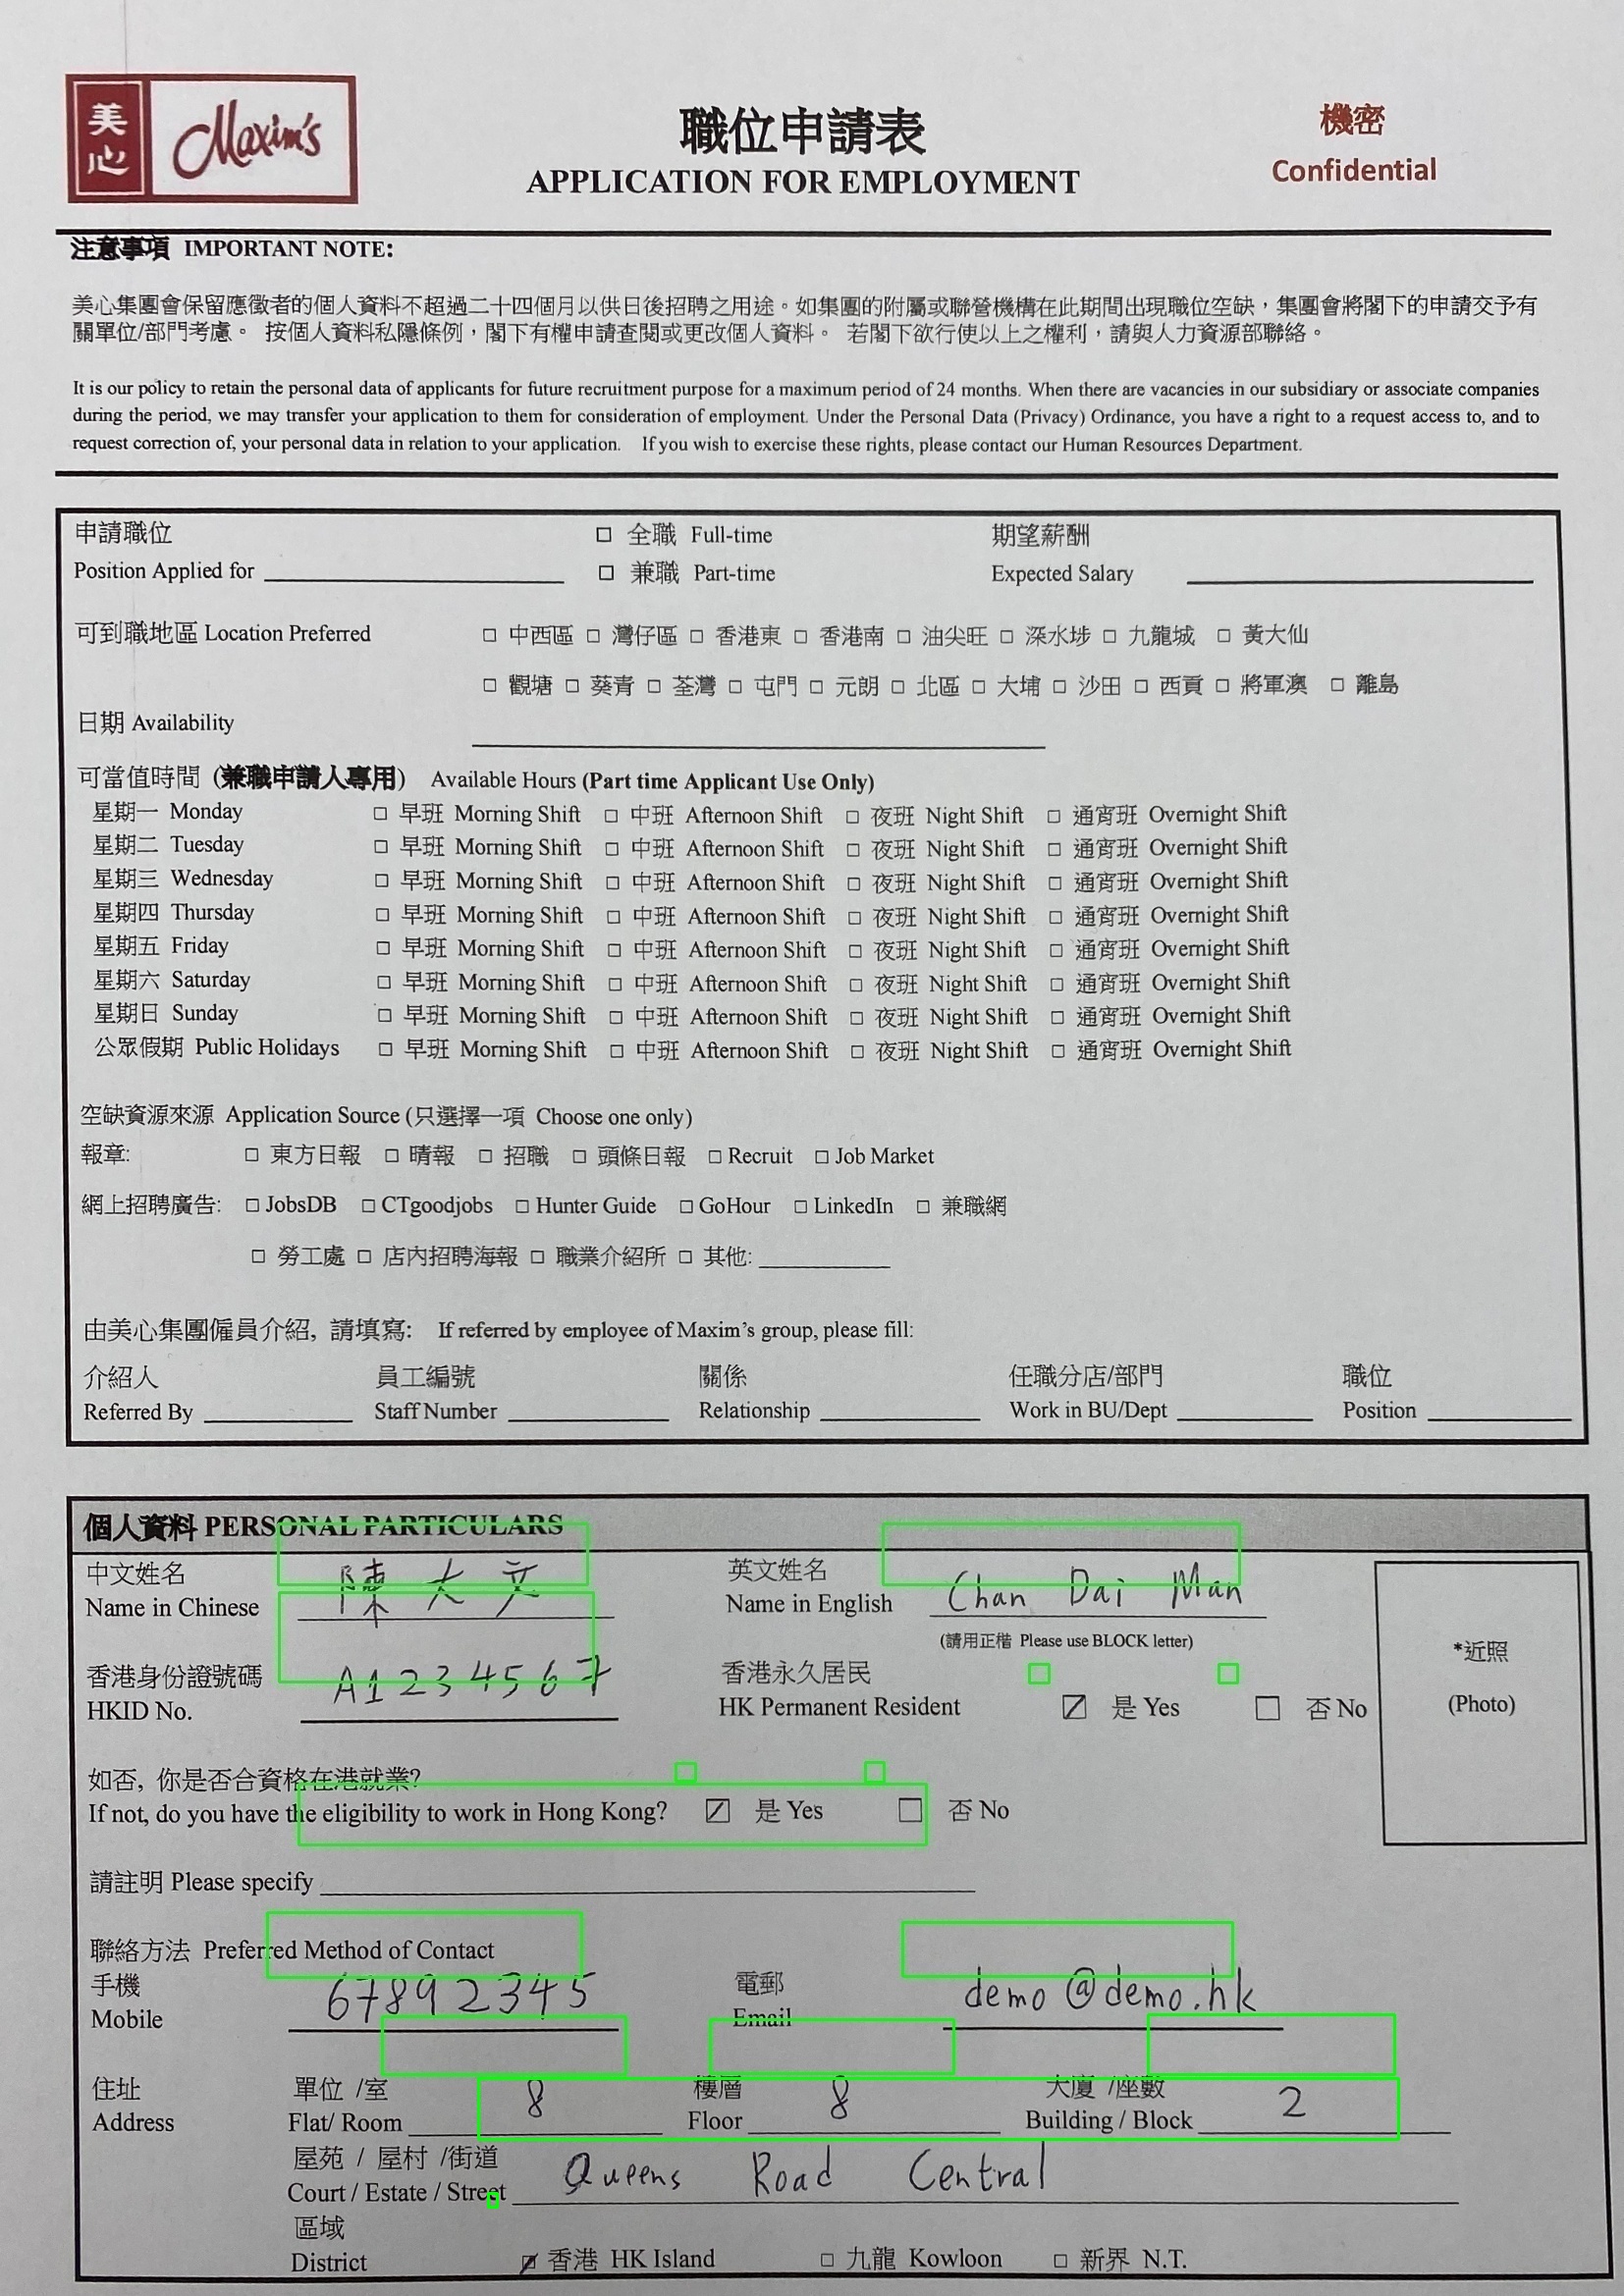 美心 Maxim's
職位申請表
APPLICATION FOR EMPLOYMENT
機密
Confidential
注意事項 IMPORTANT NOTE:
美心集團會保留應徵者的個人資料不超過二十四個月以供日後招聘之用途。如集團的附屬或聯營機構在此期間出現職位空缺，集團會將閣下的申請交予有
關單位/部門考慮。 按個人資料私隱條例，閣下有權申請查閱或更改個人資料。 若閣下欲行使以上之權利，請與人力資源部聯絡。
It is our policy to retain the personal data of applicants for future recruitment purpose for a maximum period of 24 months. When there are vacancies in our subsidiary or associate companies
during the period, we may transfer your application to them for consideration of employment. Under the Personal Data (Privacy) Ordinance, you have a right to a request access to, and to
request correction of, your personal data in relation to your application. If you wish to exercise these rights, please contact our Human Resources Department.
申請職位 □ 全職 Full-time 期望薪酬
Position Applied for □ 兼職 Part-time Expected Salary
可到職地區 Location Preferred □ 中西區 □ 灣仔區 □ 香港東 □ 香港南 □ 油尖旺 □ 深水埗 □ 九龍城 □ 黃大仙
□ 觀塘 □ 葵青 □ 荃灣 □ 屯門 □ 元朗 □ 北區 □ 大埔 □ 沙田 □ 西貢 □ 將軍澳 □ 離島
日期 Availability
可當值時間 (兼職申請人專用) Available Hours (Part time Applicant Use Only)
星期一 Monday □ 早班 Morning Shift □ 中班 Afternoon Shift □ 夜班 Night Shift □ 通宵班 Overnight Shift
星期二 Tuesday □ 早班 Morning Shift □ 中班 Afternoon Shift □ 夜班 Night Shift □ 通宵班 Overnight Shift
星期三 Wednesday □ 早班 Morning Shift □ 中班 Afternoon Shift □ 夜班 Night Shift □ 通宵班 Overnight Shift
星期四 Thursday □ 早班 Morning Shift □ 中班 Afternoon Shift □ 夜班 Night Shift □ 通宵班 Overnight Shift
星期五 Friday □ 早班 Morning Shift □ 中班 Afternoon Shift □ 夜班 Night Shift □ 通宵班 Overnight Shift
星期六 Saturday □ 早班 Morning Shift □ 中班 Afternoon Shift □ 夜班 Night Shift □ 通宵班 Overnight Shift
星期日 Sunday □ 早班 Morning Shift □ 中班 Afternoon Shift □ 夜班 Night Shift □ 通宵班 Overnight Shift
公眾假期 Public Holidays □ 早班 Morning Shift □ 中班 Afternoon Shift □ 夜班 Night Shift □ 通宵班 Overnight Shift
空缺資源來源 Application Source (只選擇一項 Choose one only)
報章: □ 東方日報 □ 晴報 □ 招職 □ 頭條日報 □ Recruit □ Job Market
網上招聘廣告: □ JobsDB □ CTgoodjobs □ Hunter Guide □ GoHour □ LinkedIn □ 兼職網
□ 勞工處 □ 店內招聘海報 □ 職業介紹所 □ 其他:
由美心集團僱員介紹, 請填寫: If referred by employee of Maxim's group, please fill:
介紹人 員工編號 關係 任職分店/部門 職位
Referred By Staff Number Relationship Work in BU/Dept Position
個人資料 PERSONAL PARTICULARS
中文姓名 陳大文 英文姓名
Name in Chinese Name in English Chan Dai Man
(請用正楷 Please use BLOCK letter)
*近照
(Photo)
香港身份證號碼 A1234567 香港永久居民
HKID No. HK Permanent Resident ☑ 是 Yes □ 否 No
如否, 你是否合資格在港就業?
If not, do you have the eligibility to work in Hong Kong? ☑ 是 Yes □ 否 No
請註明 Please specify
聯絡方法 Preferred Method of Contact
手機 67892345 電郵 demo@demo.hk
Mobile Email
住址 單位 /室 8 樓層 8 大廈 /座數 2
Address Flat/ Room Floor Building / Block
屋苑 / 屋村 /街道 Queens Road Central
Court / Estate / Street
區域
District ☑ 香港 HK Island □ 九龍 Kowloon □ 新界 N.T.